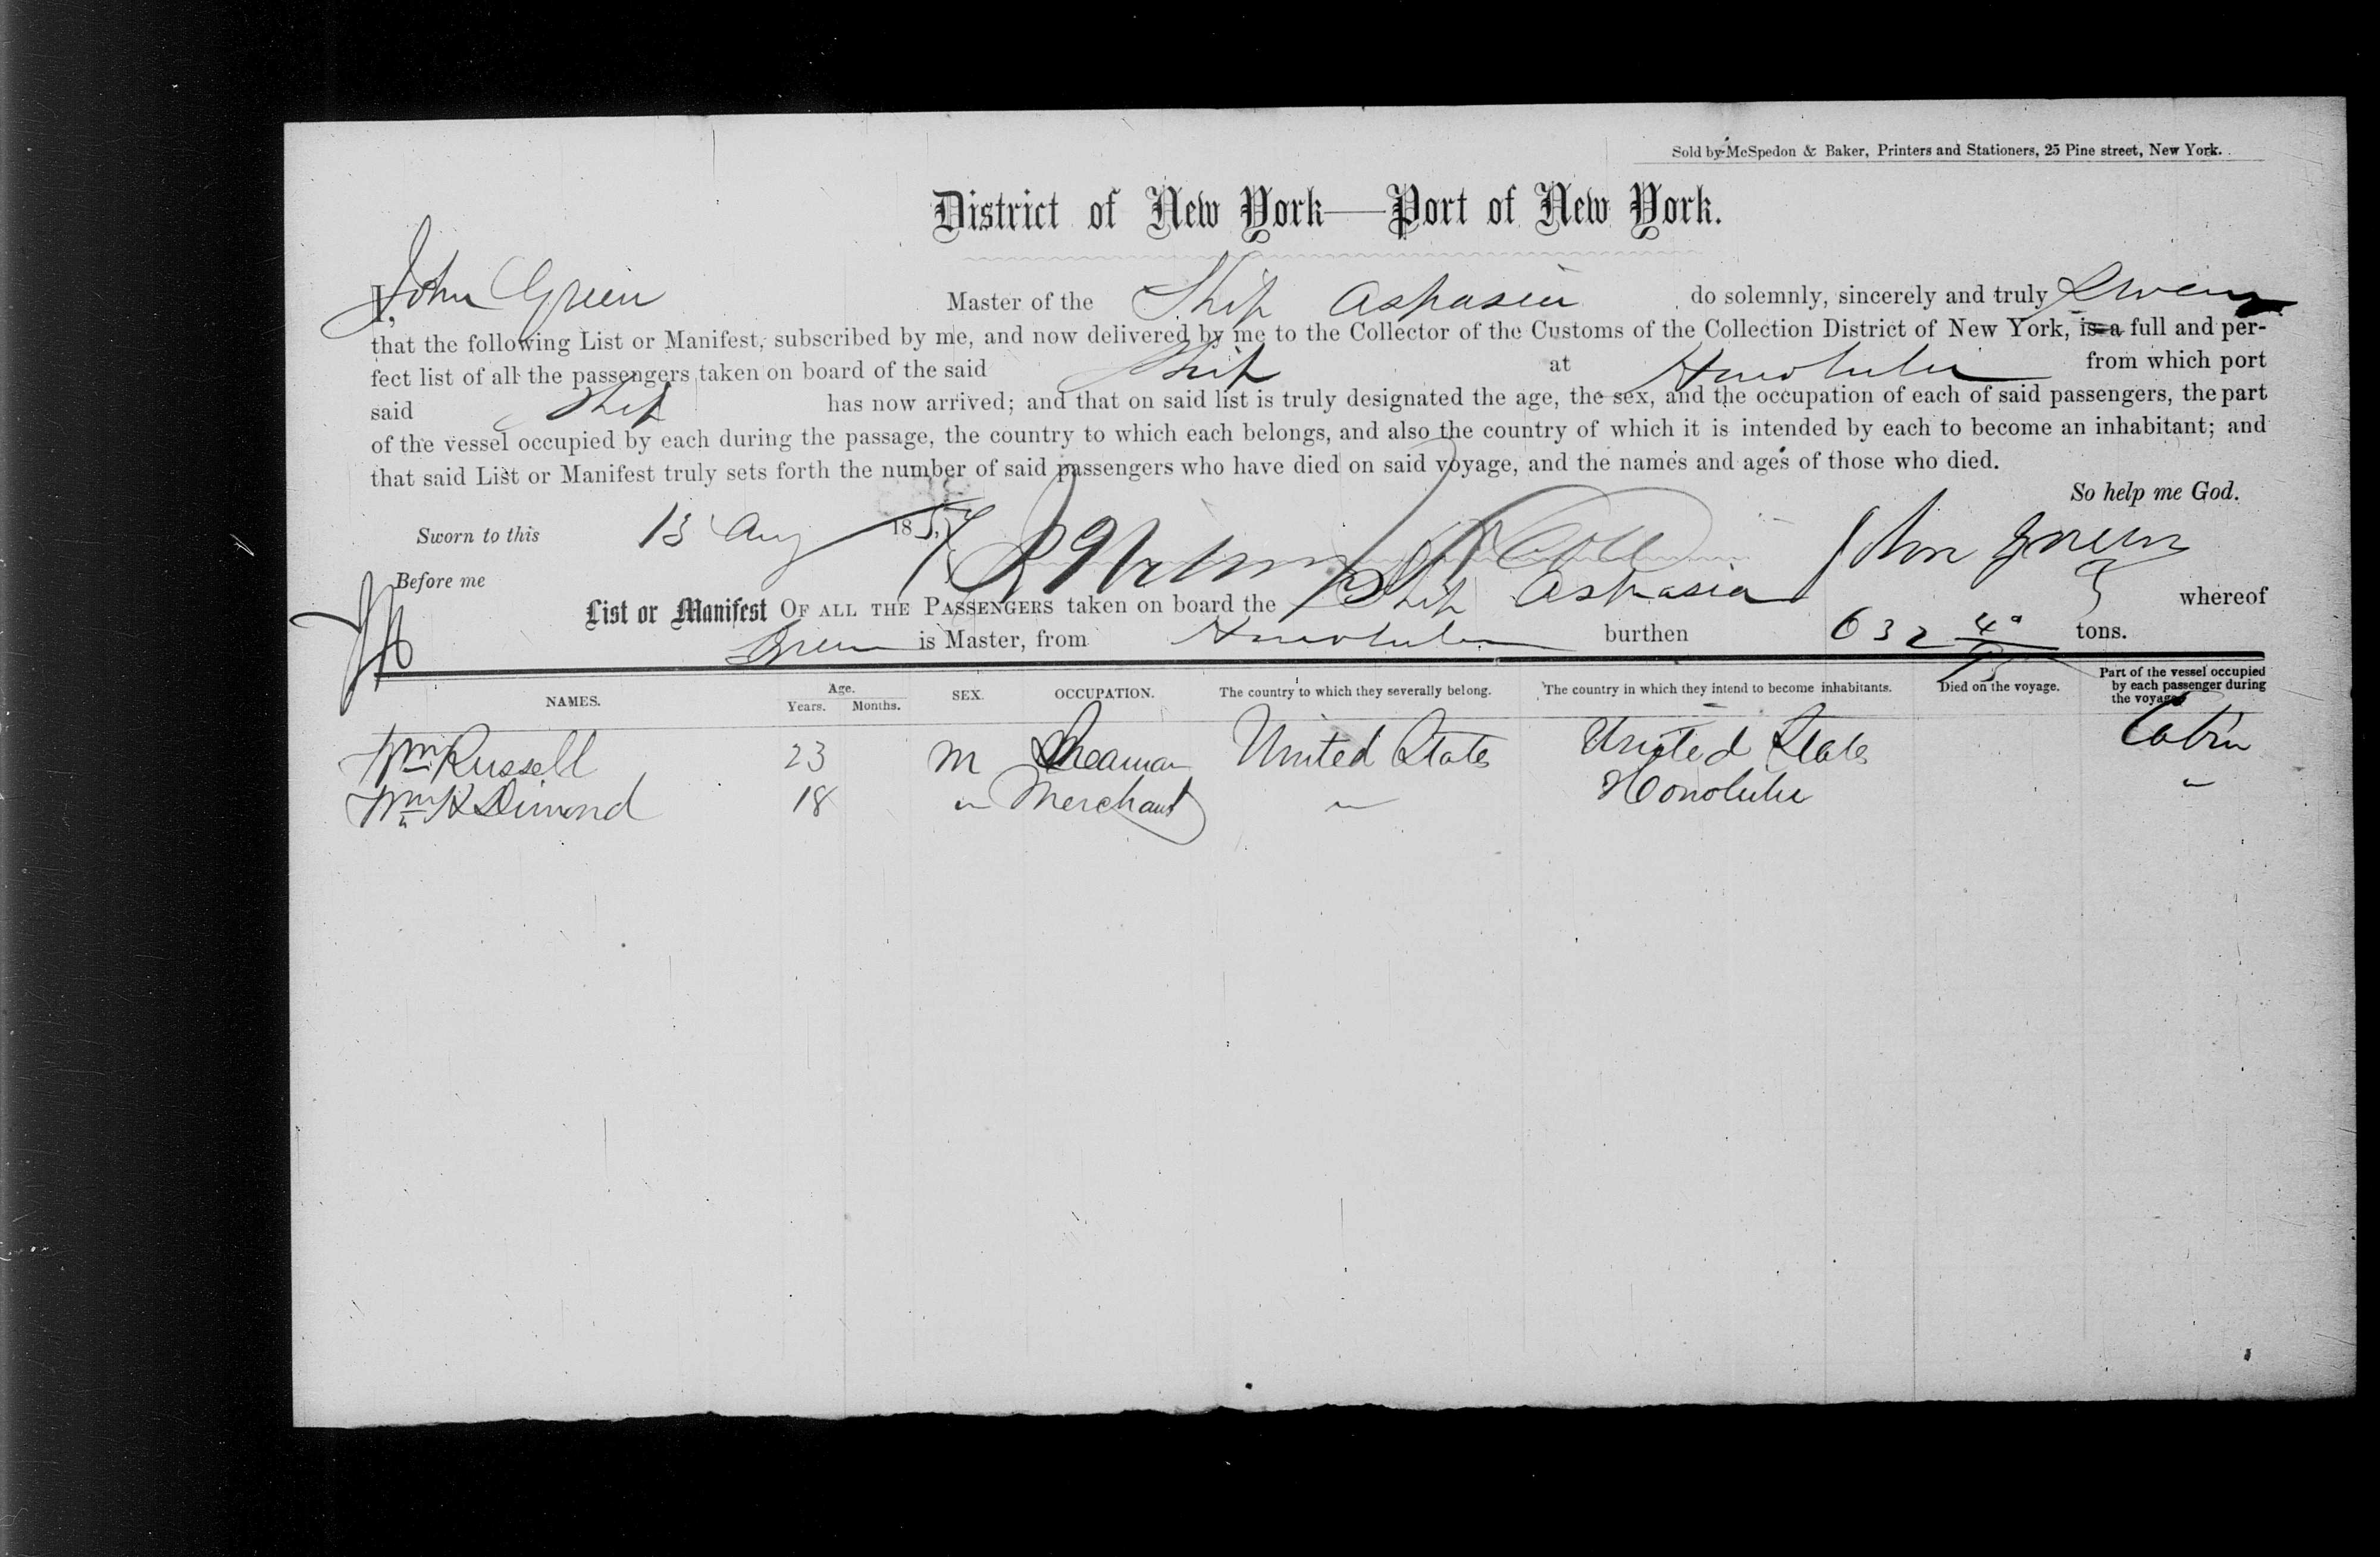 Sold by McSpedon & Baker, Printers and Stationers, 25 Pine street, New York.
District of New York—Port of New York.
I, John Green Master of the Ship Aspasia do solemnly, sincerely and truly Swear
that the following List or Manifest, subscribed by me, and now delivered by me to the Collector of the Customs of the Collection District of New York, is a full and per-
fect list of all the passengers taken on board of the said Ship at Honolulu from which port
said Ship has now arrived; and that on said list is truly designated the age, the sex, and the occupation of each of said passengers, the part
of the vessel occupied by each during the passage, the country to which each belongs, and also the country of which it is intended by each to become an inhabitant; and
that said List or Manifest truly sets forth the number of said passengers who have died on said voyage, and the names and ages of those who died.
So help me God.
Sworn to this 13 Aug 1857 John Green
Before me
List or Manifest OF ALL THE PASSENGERS taken on board the Ship Aspasia whereof
Green is Master, from Honolulu burthen 632 40/95 tons.
NAMES. Age. Years. Months. SEX. OCCUPATION. The country to which they severally belong. The country in which they intend to become inhabitants. Died on the voyage. Part of the vessel occupied by each passenger during the voyage.
Wm Russell 23 M Seaman United States United States Cabin
Wm H Dimond 18 " Merchant " Honolulu "